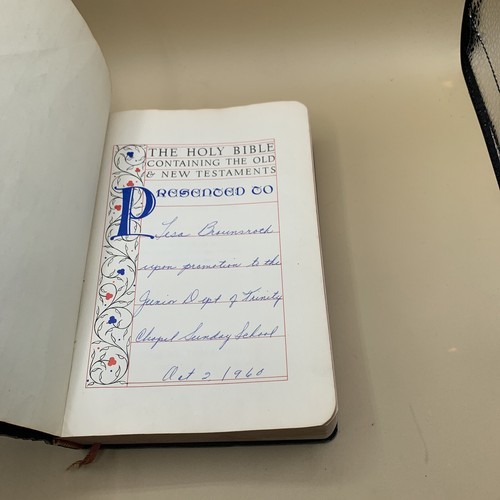 THE HOLY BIBLE
CONTAINING THE OLD
& NEW TESTAMENTS
PRESENTED TO
Lisa Brounsroth
upon promotion to the
Junior Dept of Trinity
Chapel Sunday School
Oct 2 1960